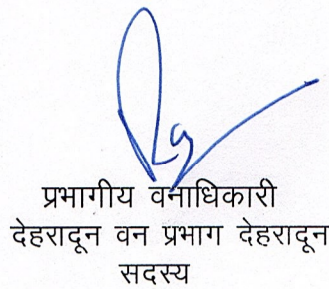 प्रभागीय वनाधिकारी
देहरादून वन प्रभाग देहरादून
सदस्य